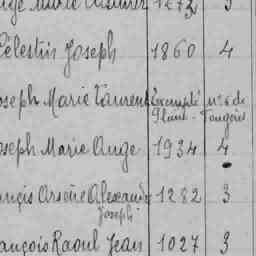 Marie 1272 3
Célestin Joseph 1860 4
Joseph Marie Laurent Exempté n° 6 de
Fougères
Joseph Marie Ange 1934 4
François Arsène Alexandre 1282 3
Joseph
François Raoul Jean 1027 3